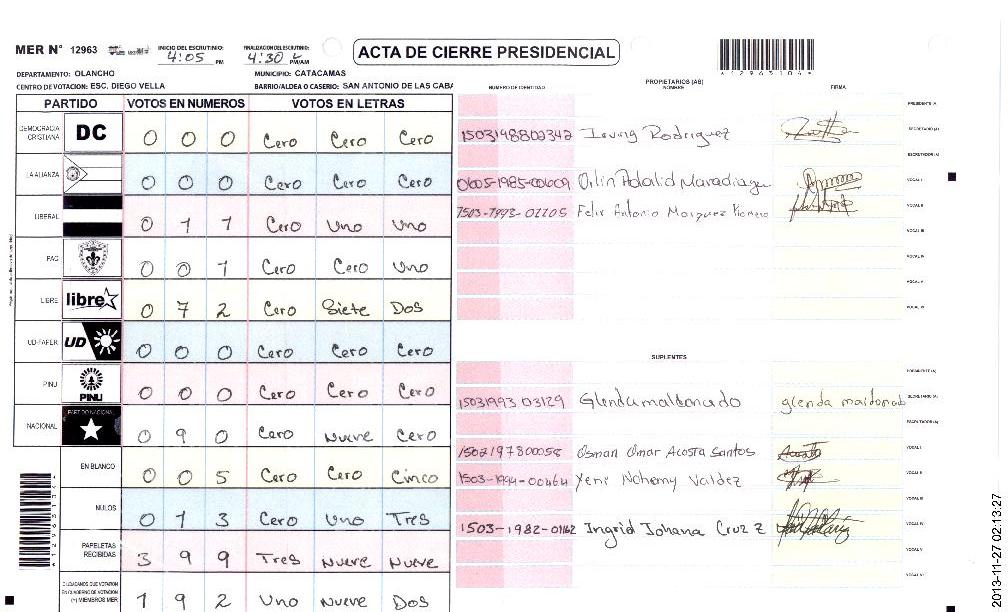 MER N° 12963 INICIO DEL ESCRUTINIO: 4:05 PM FINALIZACION DEL ESCRUTINIO: 4:30 PM/AM ACTA DE CIERRE PRESIDENCIAL
DEPARTAMENTO: OLANCHO MUNICIPIO: CATACAMAS
CENTRO DE VOTACION: ESC. DIEGO VELLA BARRIO/ALDEA O CASERIO: SAN ANTONIO DE LAS CABA
PARTIDO VOTOS EN NUMEROS VOTOS EN LETRAS
DEMOCRACIA CRISTIANA DC 0 0 0 Cero Cero Cero
LA ALIANZA 0 0 0 Cero Cero Cero
LIBERAL 0 1 1 Cero Uno Uno
PAC 0 0 1 Cero Cero Uno
LIBRE libre 0 7 2 Cero Siete Dos
UD-FAPER UD 0 0 0 Cero Cero Cero
PINU PINU 0 0 0 Cero Cero Cero
NACIONAL PARTIDO NACIONAL 0 9 0 Cero Nueve Cero
EN BLANCO 0 0 5 Cero Cero Cinco
NULOS 0 1 3 Cero Uno Tres
PAPELETAS RECIBIDAS 3 9 9 Tres Nueve Nueve
CIUDADANOS QUE VOTARON EN CUADERNO DE VOTACION (+) MIEMBROS MER 1 9 2 Uno Nueve Dos
PROPIETARIOS (AS)
NUMERO DE IDENTIDAD NOMBRE FIRMA
PRESIDENTE (A)
1503198802342 Irving Rodriguez SECRETARIO (A)
ESCRUTADOR (A)
0605-1985-00609 Orlin Adalid Maradiaga VOCAL I
1503-1993-01105 Felix Antonio Marquez VOCAL II
VOCAL III
VOCAL IV
VOCAL V
VOCAL VI
SUPLENTES
PRESIDENTE (A)
15031993 03129 Glenda maldonado glenda maldonado SECRETARIO (A)
ESCRUTADOR (A)
1502197800058 Osman Omar Acosta Santos VOCAL I
1503-1994-00464 Yeni Nohemy Valdez VOCAL II
VOCAL III
1503-1982-01162 Ingrid Johana Cruz Z VOCAL IV
VOCAL V
VOCAL VI
2013-11-27 02:13:27